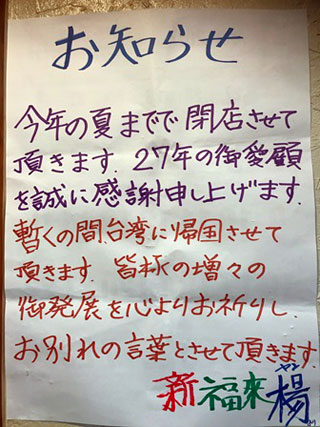 お知らせ
今年の夏までで閉店させて
頂きます. 27年の御愛顧
を誠に感謝申し上げます.
暫くの間.台湾に帰国させて
頂きます. 皆様の増々の
御発展を心よりお祈りし.
お別れの言葉とさせて頂きます
新福来 楊